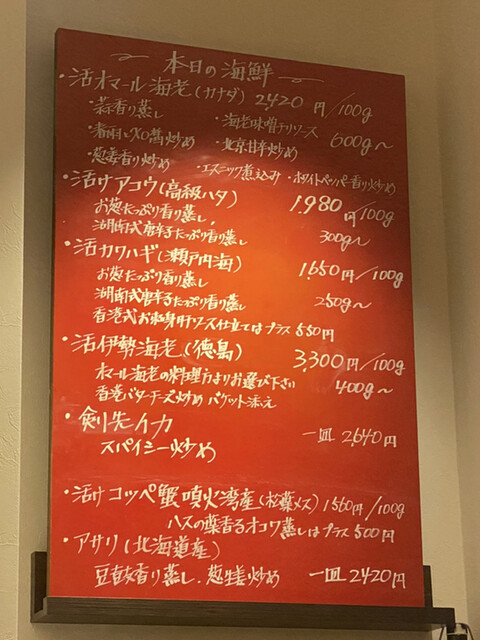 本日の海鮮
・活オマール海老(カナダ) 2,420円/100g
・蒜香り蒸し ・海老味噌チリソース 600g〜
・XO醤炒め ・北京甘辛炒め
・葱香り炒め ・エスニック煮込み ・ホワイトペッパー香り炒め
・活けアコウ(高級ハタ) 1,980円/100g
お葱たっぷり香り蒸し 300g〜
湖南式唐辛子たっぷり香り蒸し
・活カワハギ(瀬戸内海) 1,650円/100g
お葱たっぷり香り蒸し
湖南式唐辛子たっぷり香り蒸し 250g〜
香港式お刺身肝ソース仕立てはプラス550円
・活伊勢海老(徳島) 3,300円/100g
オマール海老の料理方よりお選び下さい 400g〜
香港バターチーズ炒めバゲット添え
・剣先イカ 一皿 2,640円
スパイシー炒め
・活けコッペ蟹噴火湾産(松葉メス) 1560円/100g
ハスの葉香るオコワ蒸しはプラス500円
・アサリ(北海道産)
豆鼓香り蒸し、葱生姜炒め 一皿 2420円